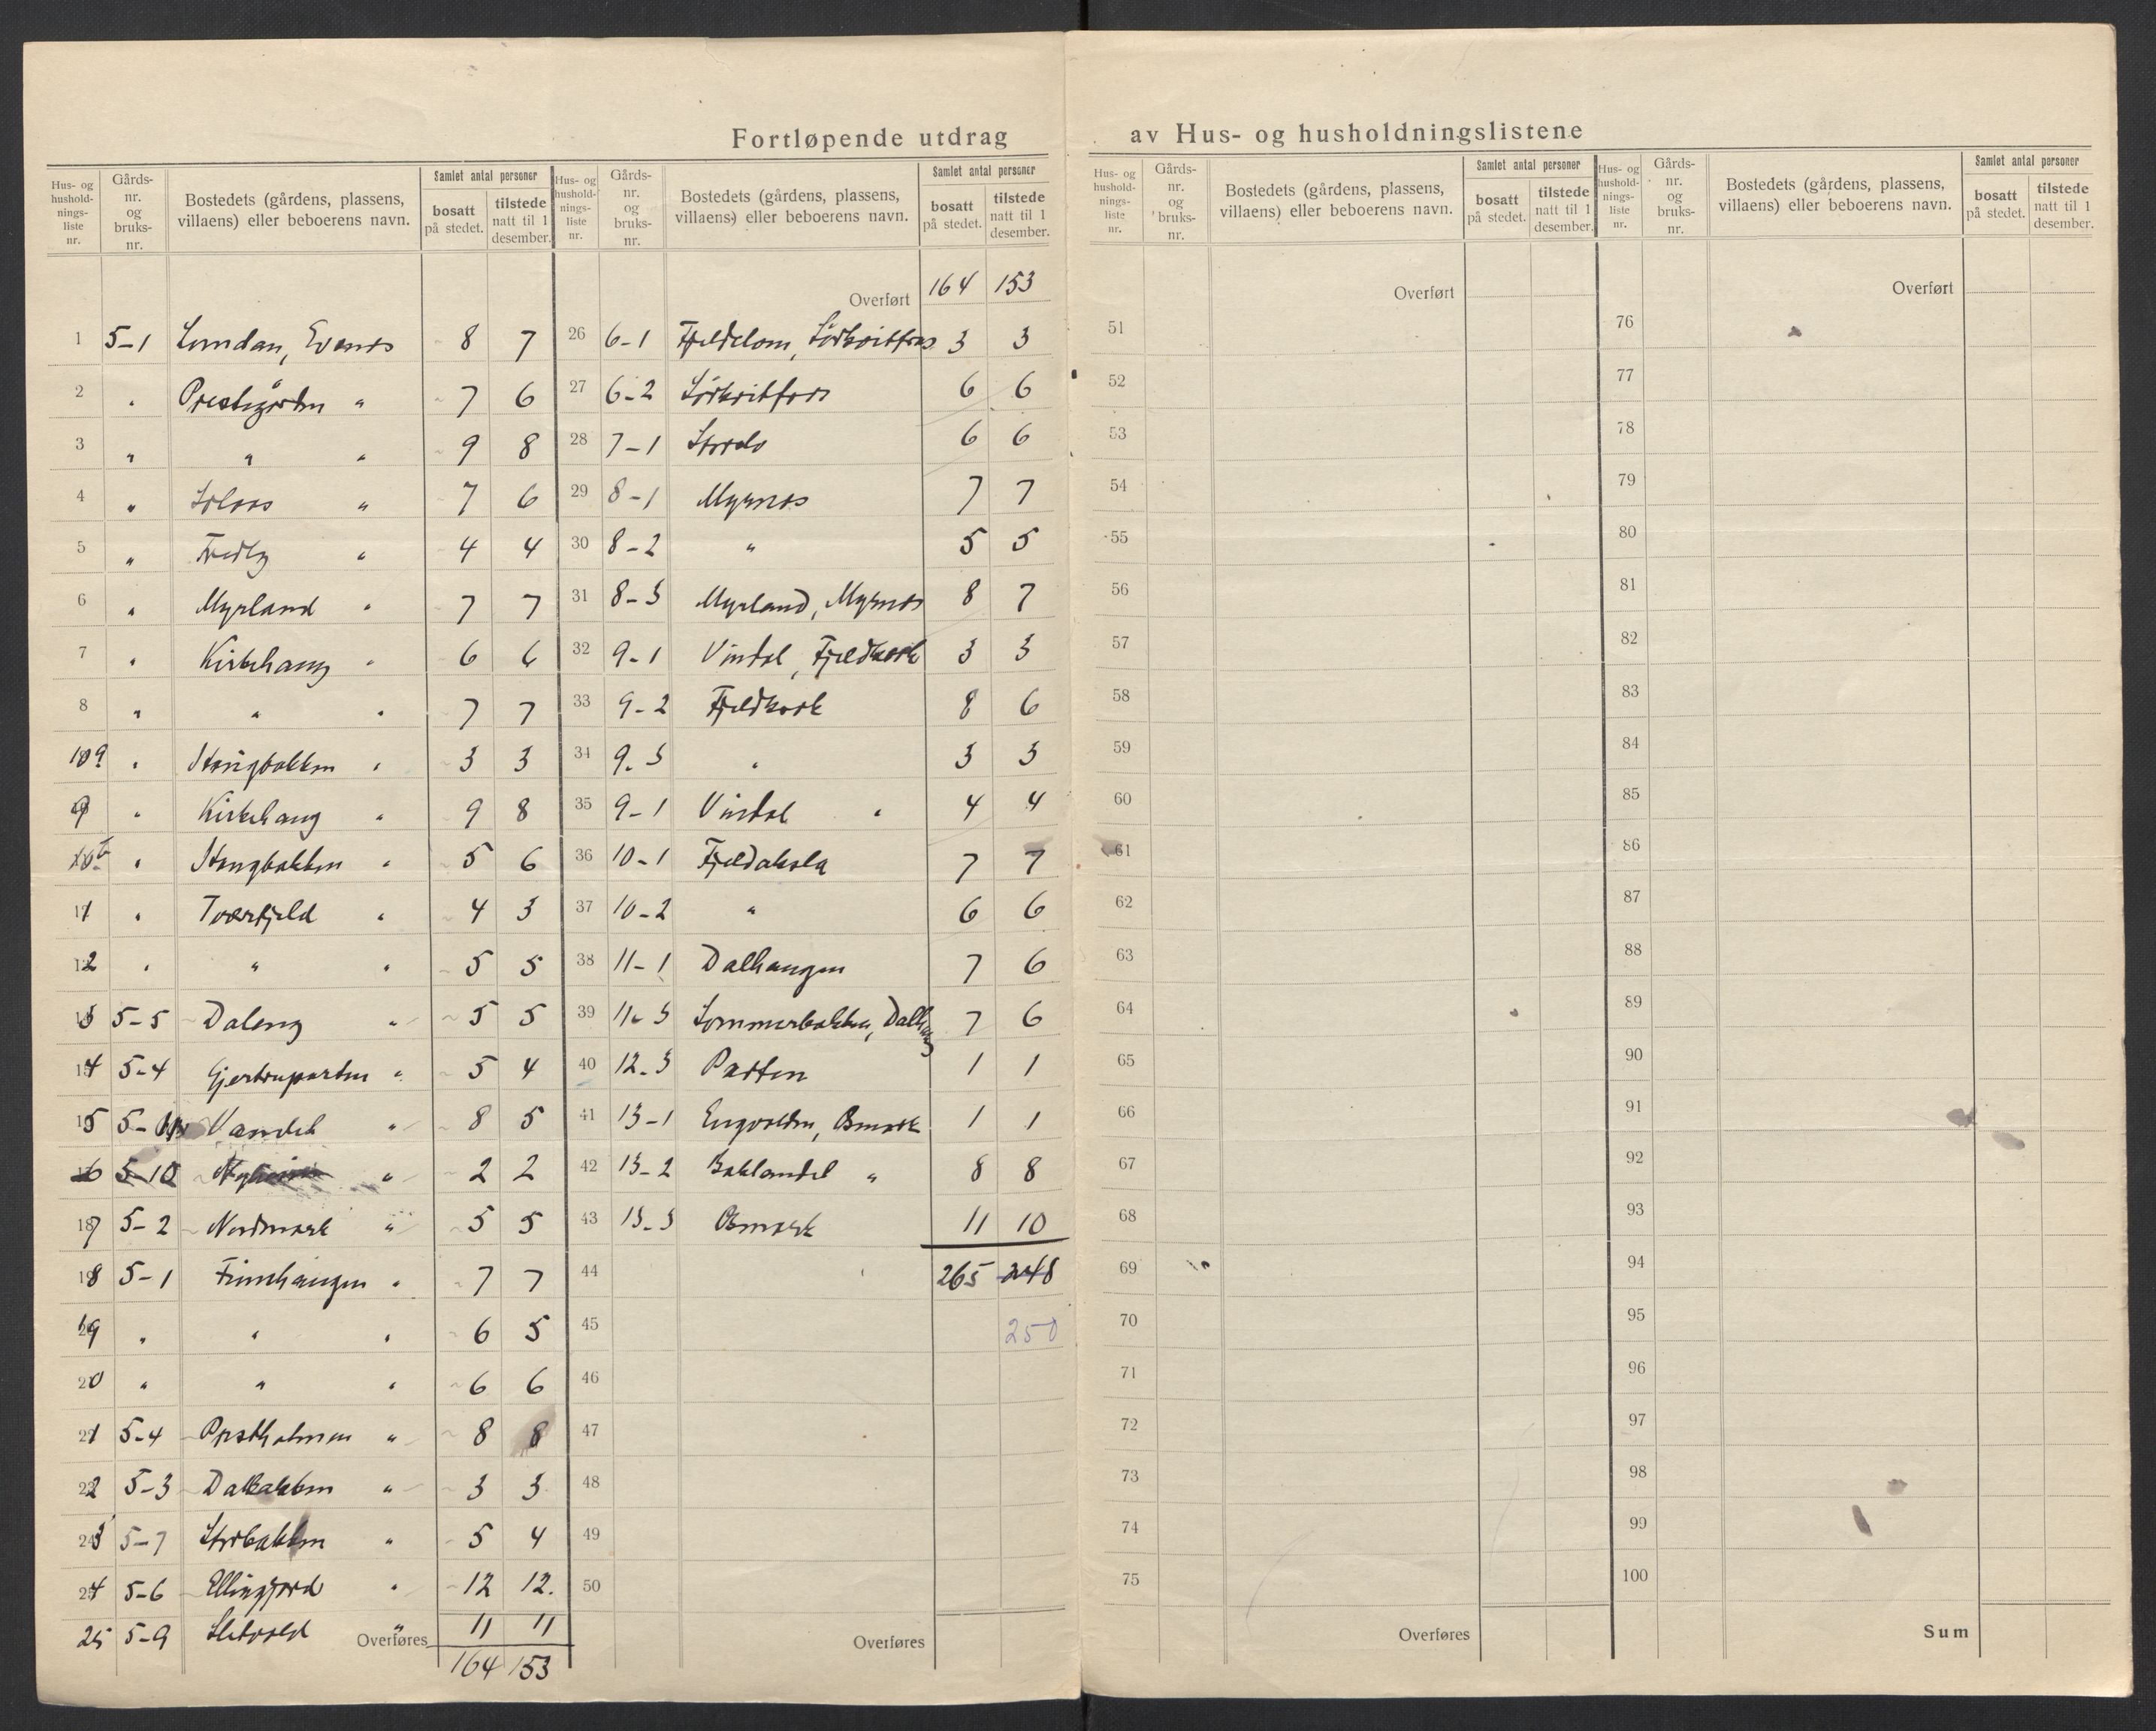 Fortløpende utdrag av Hus- og husholdningslistene
Hus- og hushold-nings-liste nr. Gårds-nr. og bruks-nr. Bostedets (gårdens, plassens, villaens) eller beboerens navn. Samlet antal personer bosatt på stedet. tilstede natt til 1 desember.
1 5-1 Lundan, Evenes 8 7
2 " Prestegården " 7 6
3 " " " 9 8
4 " Solaas " 7 6
5 " Fredly " 4 4
6 " Myrland " 7 7
7 " Kirkehaug " 6 6
8 " " " 7 7
9 " Stangbakken " 3 3
9 " Kirkehaug " 9 8
10 " Stangbakken " 5 6
11 " Tverfjeld " 4 3
12 " " " 5 5
13 5-5 Daleng " 5 5
14 5-4 " 5 4
15 Vandet " 8 5
16 5-10 " 2 2
17 5-2 Nordmark " 5 5
18 5-1 Finnhaugen " 7 7
19 " " " 6 5
20 " " " 6 6
21 5-4 Postholmen " 8 8
22 5-3 Dalbakken " 3 3
23 5-7 Storbakken " 5 4
24 5-6 Ellingjord " 12 12.
25 5-9 Sletvold " 11 11
Overføres 164 153
Hus- og hushold-nings-liste nr. Gårds-nr. og bruks-nr. Bostedets (gårdens, plassens, villaens) eller beboerens navn. Samlet antal personer bosatt på stedet. tilstede natt til 1 desember.
Overført 164 153
26 6-1 3 3
27 6-2 6 6
28 7-1 6 6
29 8-1 Myrnes 7 7
30 8-2 " 5 5
31 8-3 Myrland, Myrnes 8 7
32 9-1 Vindal, Fjeldkaak 3 3
33 9-2 Fjeldkaak 8 6
34 9-3 " 3 3
35 9-1 Vindal " 4 4
36 10-1 Fjeldaksla 7 7
37 10-2 " 6 6
38 11-1 Dalhaugen 7 6
39 11-3 Sommerbakken, Dalhaug 7 6
40 12-3 Parten 1 1
41 13-1 Osmark 1 1
42 13-2 Baklandet " 8 8
43 13-3 Osmark 11 10
44 265 248
45 250
46
47
48
49
50
Overføres
Hus- og hushold-nings-liste nr. Gårds-nr. og bruks-nr. Bostedets (gårdens, plassens, villaens) eller beboerens navn. Samlet antal personer bosatt på stedet. tilstede natt til 1 desember.
Overført
51
52
53
54
55
56
57
58
59
60
61
62
63
64
65
66
67
68
69
70
71
72
73
74
75
Overføres
Hus- og hushold-nings-liste nr. Gårds-nr. og bruks-nr. Bostedets (gårdens, plassens, villaens) eller beboerens navn. Samlet antal personer bosatt på stedet. tilstede natt til 1 desember.
Overført
76
77
78
79
80
81
82
83
84
85
86
87
88
89
90
91
92
93
94
95
96
97
98
99
100
Sum